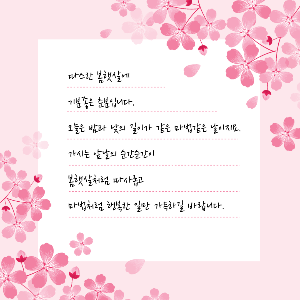 따스한 봄햇살에
기분좋은 춘분입니다.
오늘은 밤과 낮의 길이가 같은 마법같은 날이지요.
가시는 앞날의 순간순간이
봄햇살처럼 따사롭고
마법처럼 행복한 일만 가득하길 바랍니다.